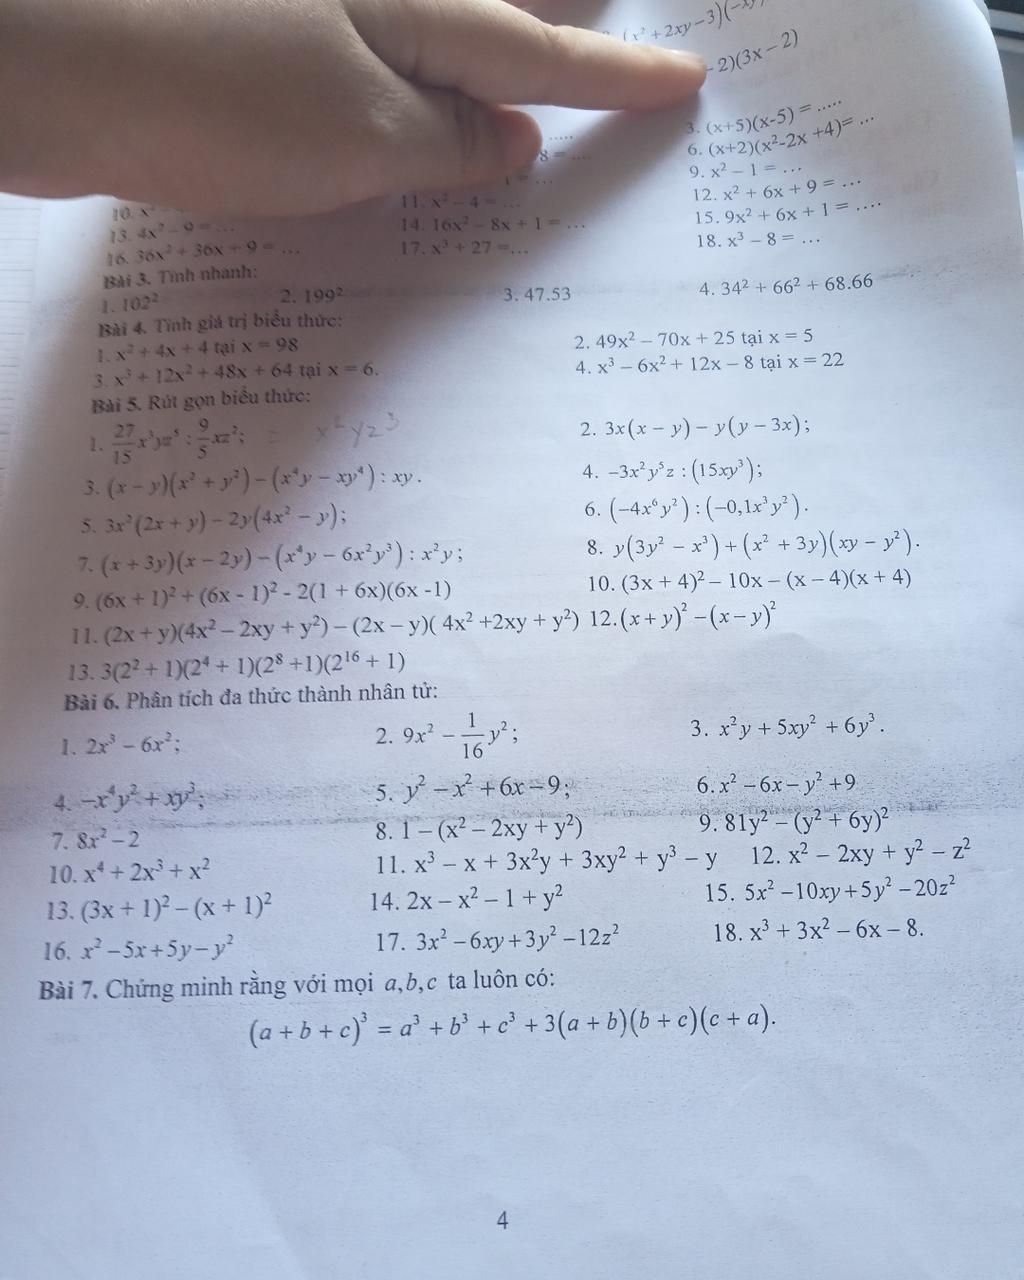 (x² + 2xy – 3)(–xy
– 2)(3x – 2)
..... 3. (x+5)(x-5) = .....
8 = .... 6. (x+2)(x²-2x +4)= ...
1 = ... 9. x² – 1 = ...
10. x² – 11. x² – 4 = ... 12. x² + 6x + 9 = ...
13. 4x² – 9 = ... 14. 16x² – 8x + 1 = ... 15. 9x² + 6x + 1 = ....
16. 36x² + 36x + 9 = ... 17. x³ + 27 =... 18. x³ – 8 = ...
Bài 3. Tính nhanh:
1. 102² 2. 199² 3. 47.53 4. 34² + 66² + 68.66
Bài 4. Tính giá trị biểu thức:
1. x² + 4x + 4 tại x = 98 2. 49x² – 70x + 25 tại x = 5
3. x³ + 12x² + 48x + 64 tại x = 6. 4. x³ – 6x² + 12x – 8 tại x = 22
Bài 5. Rút gọn biểu thức:
1. 27/15 x³yz⁵ : 9/5 xz²; = x²yz³ 2. 3x(x – y) – y(y – 3x);
3. (x – y)(x² + y²) – (x⁴y – xy⁴) : xy. 4. –3x²y⁵z : (15xy³);
5. 3x²(2x + y) – 2y(4x² – y); 6. (–4x⁶y²) : (–0,1x³y²).
7. (x + 3y)(x – 2y) – (x⁴y – 6x²y³) : x²y; 8. y(3y² – x³) + (x² + 3y)(xy – y²).
9. (6x + 1)² + (6x - 1)² - 2(1 + 6x)(6x -1) 10. (3x + 4)² – 10x – (x – 4)(x + 4)
11. (2x + y)(4x² – 2xy + y²) – (2x – y)( 4x² +2xy + y²) 12. (x + y)² – (x – y)²
13. 3(2² + 1)(2⁴ + 1)(2⁸ +1)(2¹⁶ + 1)
Bài 6. Phân tích đa thức thành nhân tử:
1. 2x³ – 6x²; 2. 9x² – 1/16 y²; 3. x²y + 5xy² + 6y³.
4. –x⁴y² + xy³; 5. y² – x² + 6x – 9; 6. x² – 6x – y² + 9
7. 8x² – 2 8. 1 – (x² – 2xy + y²) 9. 81y² – (y² + 6y)²
10. x⁴ + 2x³ + x² 11. x³ – x + 3x²y + 3xy² + y³ – y 12. x² – 2xy + y² – z²
13. (3x + 1)² – (x + 1)² 14. 2x – x² – 1 + y² 15. 5x² – 10xy + 5y² – 20z²
16. x² – 5x + 5y – y² 17. 3x² – 6xy + 3y² – 12z² 18. x³ + 3x² – 6x – 8.
Bài 7. Chứng minh rằng với mọi a,b,c ta luôn có:
(a + b + c)³ = a³ + b³ + c³ + 3(a + b)(b + c)(c + a).
4